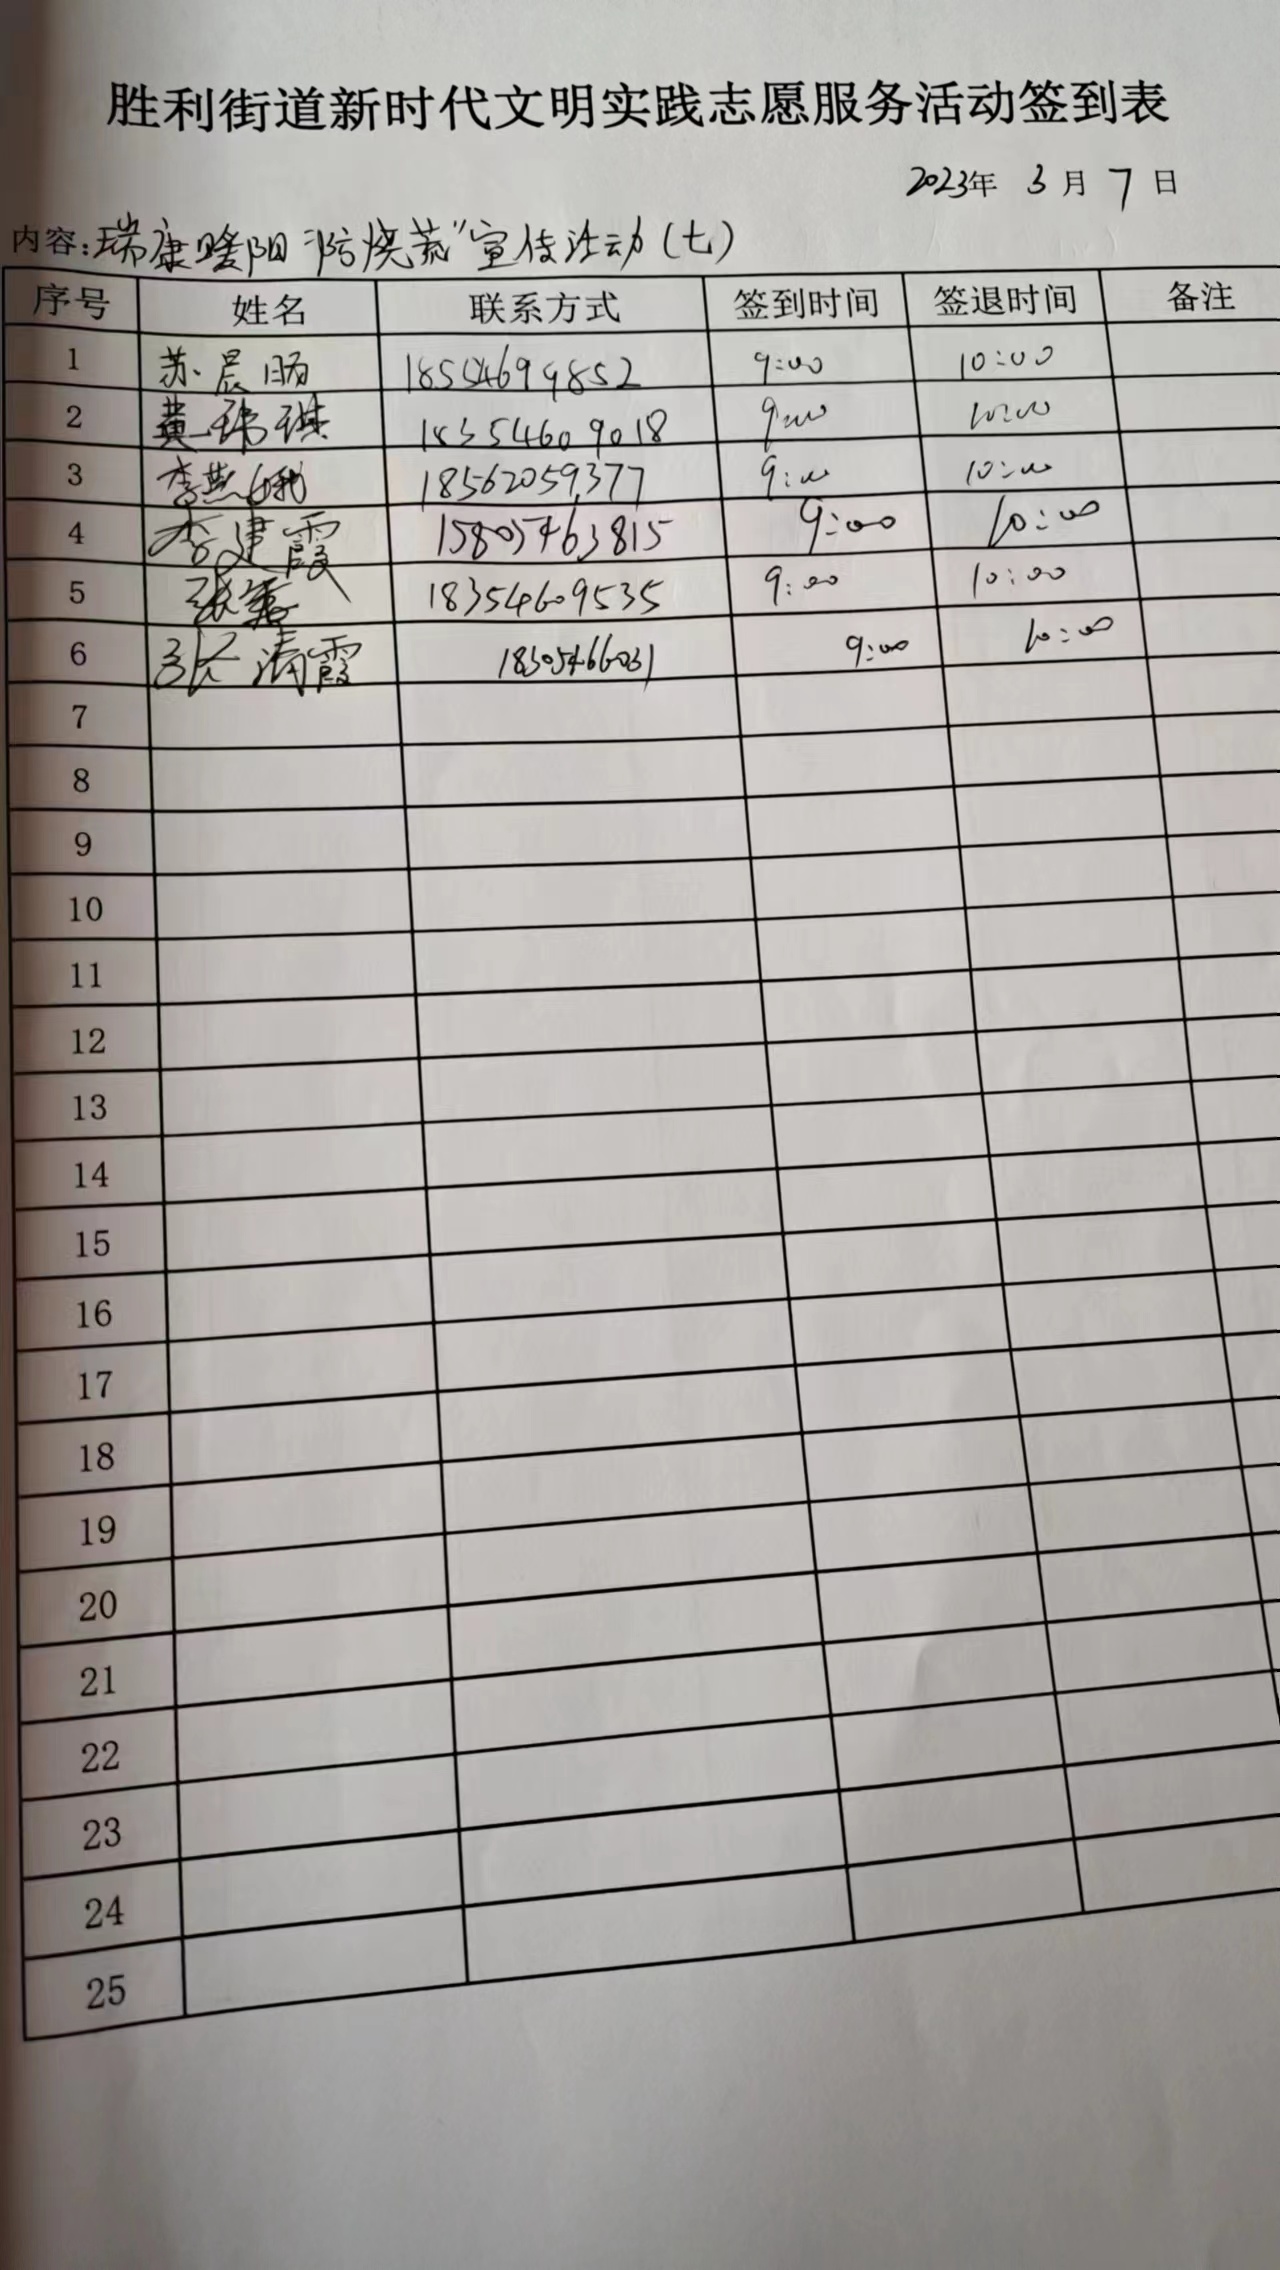 胜利街道新时代文明实践志愿服务活动签到表
2023年 3月 7日
内容:瑞康暖阳"防烧荒"宣传活动(七)
序号 姓名 联系方式 签到时间 签退时间 备注
1 苏晨旸 18554699852 9:00 10:00
2 黄玮琪 18354609018 9:00 10:00
3 李燕 18562059377 9:00 10:00
4 李建霞 15805463815 9:00 10:00
5 张 18354609535 9:00 10:00
6 张清霞 18305466031 9:00 10:00
7
8
9
10
11
12
13
14
15
16
17
18
19
20
21
22
23
24
25